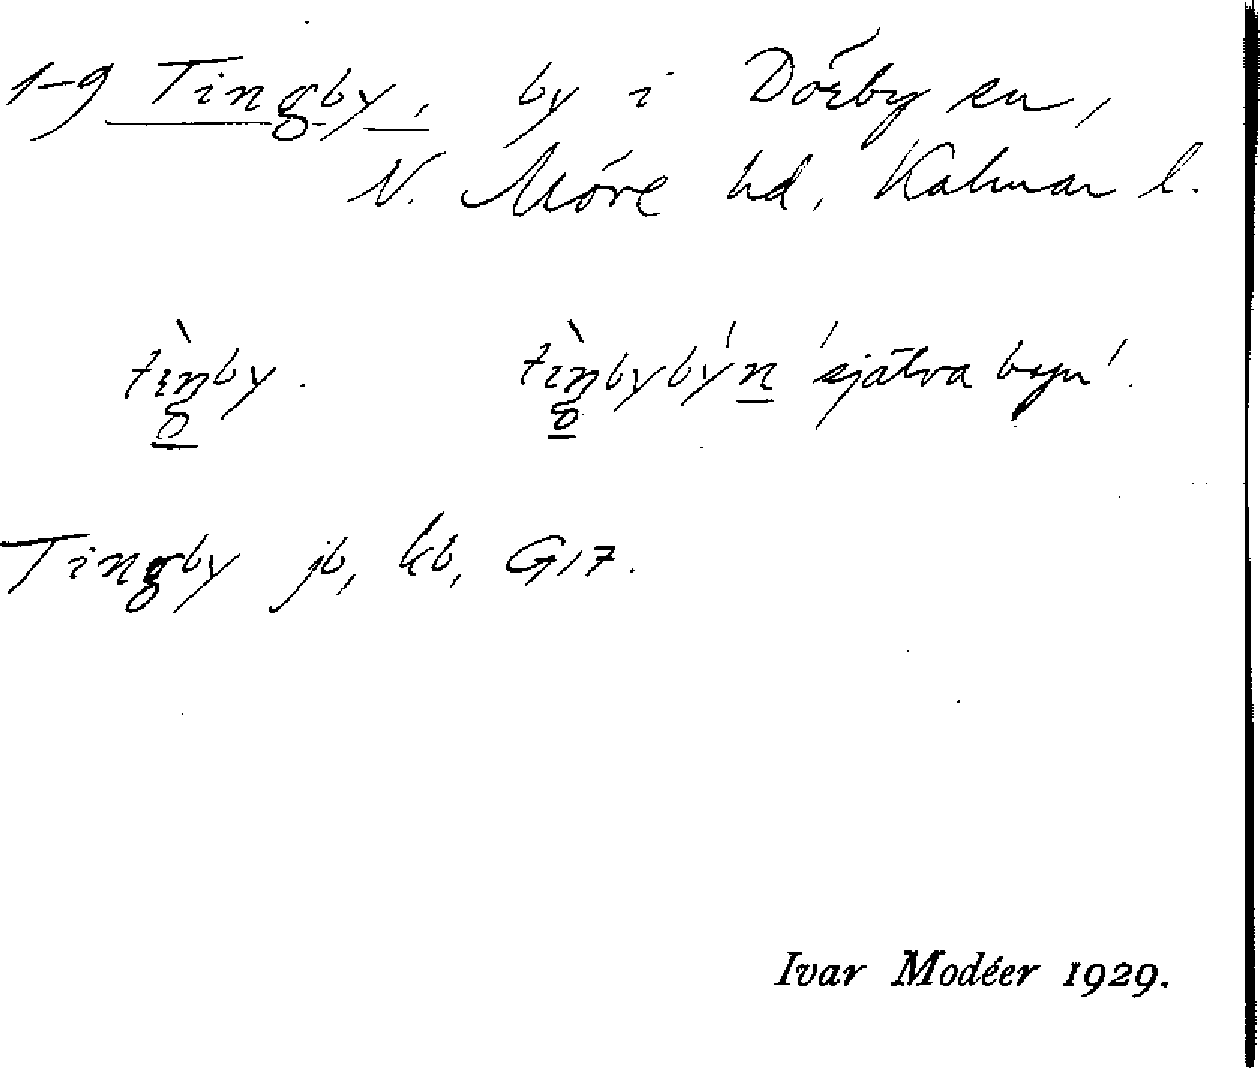 1-9 Tingby, by i Dörby sn,
N. Möre hd, Kalmar l.
tìŋby. tìŋbybýn 'själva byn'.
Tingby jb, kb, G17.
Ivar Modéer 1929.